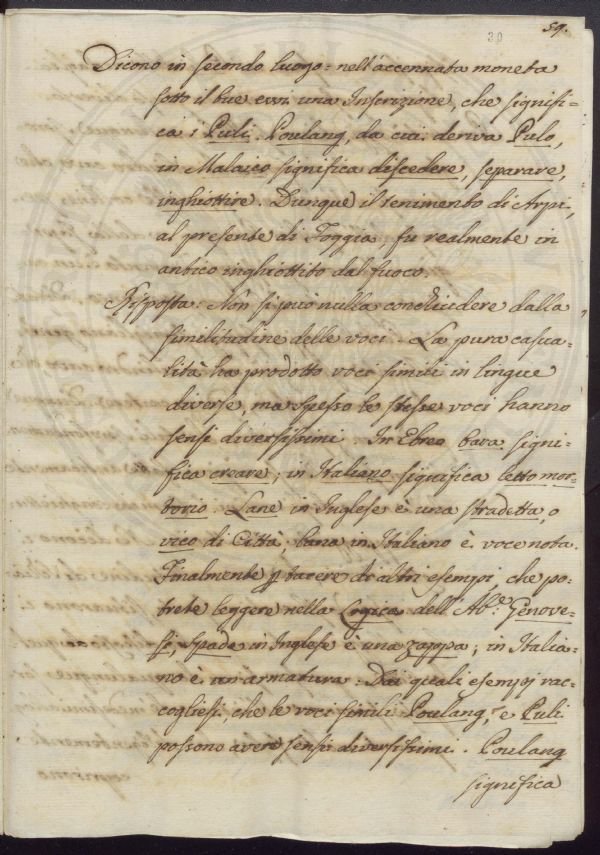 59.
30
Dicono in secondo luogo = nell'accennata moneta
sotto il bue evvi una Inscrizione, che signifi=
ca: Puli. Poulang, da cui deriva Pulo,
in Malaico significa discedere, separare,
inghiottire. Dunque il tenimento di Arpi,
al presente di Foggia, fu realmente in
antico inghiottito dal fuoco.
Risposta: Non si può nulla conchiudere dalla
similitudine delle voci. La pura casua=
lità ha prodotto voci simili in lingue
diverse, ma spesso le stesse voci hanno
sensi diversissimi. In Ebreo bara signi=
fica creare; in Italiano significa letto mor=
torio. Lane in Inglese è una stradetta, o
vico di Città; lana in Italiano è voce nota.
Finalmente p tacere di altri esempj, che po=
trete leggere nella Logica dell'Ab.e Genove=
si, Spade in Inglese è una zappa; in Italia=
no è un'armatura. Dai quali esempj rac=
cogliesi, che le voci simili Poulang, e Puli
possono avere sensi diversissimi. Poulang
significa